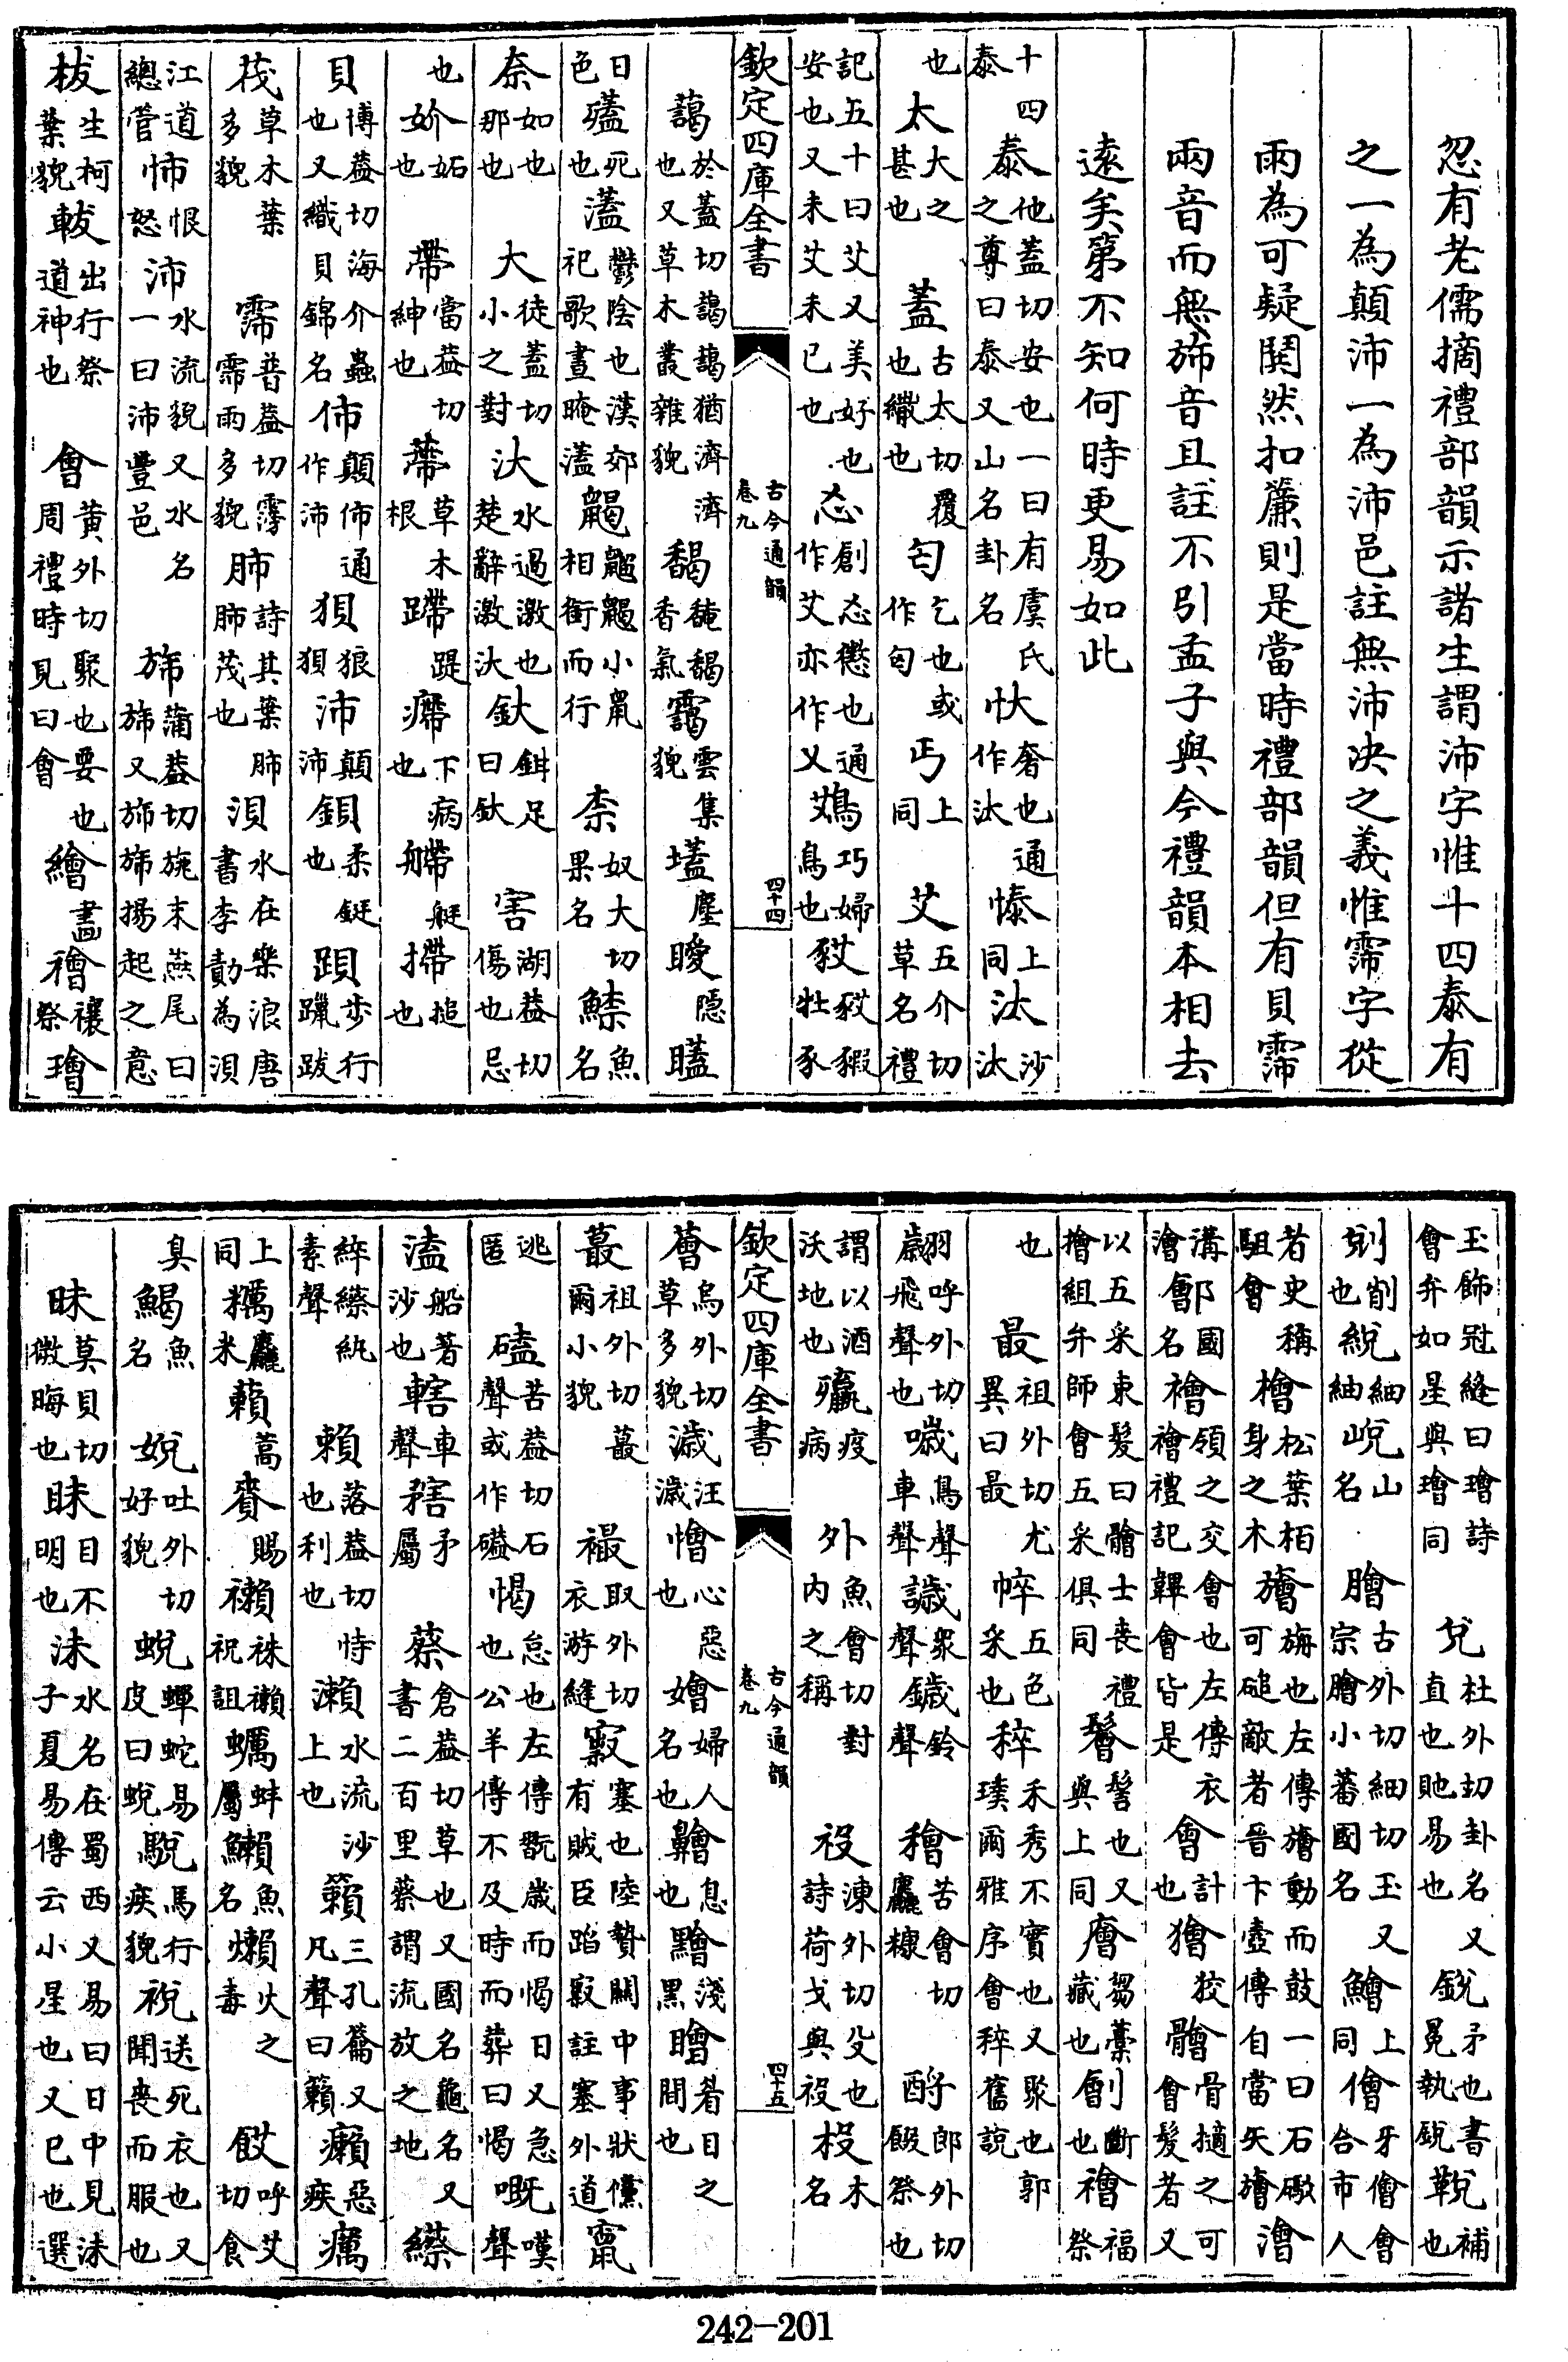 忽有老儒摘禮部韻示諸生謂沛字惟十四泰有
之一為顛沛一為沛邑註無沛決之義惟霈字從
雨為可疑鬨然扣簾則是當時禮部韻但有貝霈
兩音而無旆音且註不引孟子與今禮韻本相去
遠矣第不知何時更易如此
十四泰泰他蓋切安也一曰有虞氏之尊曰泰又山名卦名忕奢也通作汰忲上同汰沙汰
也太大之甚也蓋古太切覆也繖也匄乞也或作匃丐上同艾五介切草名禮
記五十曰艾又美好也安也又未艾未已也忞創忞懲也通作艾亦作乂鴱巧婦鳥也豛豛豭牡豕
欽定四庫全書
古今通韻
卷九
四十四
藹於蓋切藹藹猶濟濟也又草木叢雜貌馤馣馤香氣靄雲集貌壒塵曖隱𥌚
日色㱼死也濭鬱陰也漢郊祀歌晝晻濭鶡鼰鶡小鼠相銜而行柰奴大切果名鰲魚名
奈如也那也大徒蓋切小之對汏水過激也楚辭激汏釱鉗足曰釱害湖葢切傷也忌
也妎妬也帶當葢切紳也蔕草木根蹛踶㿃下病也艜艇摕搥也
貝博葢切海介蟲也又織貝錦名㤄顛㤄通作沛狽狼狽沛顛沛鋇柔鋌也跟步行躐跋
茷草木葉多貌霈普葢切霶霈雨多貌肺詩其葉肺肺茂也浿水在樂浪唐書李勣為浿
江道總管怖恨怒沛水流貌一曰沛又水名豐邑旆蒲葢切旆旆又旆旆揚起之意旐末燕尾曰
柭生柯葉貌軷出行祭道神也會黃外切聚也要也周禮時見曰會繪畫禬禳祭璯
玉飾冠縫曰璯詩會弁如星與璯同兌杜外切卦名又直也虵易也銳矛也書冕執銳䩭補也
刽削也䋘細紬㟋山名膾古外切細切玉又宗膾小蕃國名鱠上同儈牙儈會合市人
者史稱駔會檜松葉柏身之木旝旃也左傳旝動而鼓一曰石䃮可磓敵者晉卞壼傳自當矢旝澮
溝澮鄶國名襘領之交會也左傳衣襘禮記鞸會皆是會計也獪狡䯤骨擿之可會髮者又
以五采束髮曰䯤士喪禮擿組弁師會五采俱同鬠髻也又與上同廥芻藁藏也劊斷也禬福祭
也最祖外切尤異曰最㡜五色采也稡禾秀不實也又聚也郭璞爾雅序會稡舊說
翽呼外切翽飛聲也噦鳥聲車聲䜋眾聲鐬鈴聲穭苦會切麤糠酹郎外切餟祭也
謂以酒沃地也㱻疫病外魚會切對內之稱祋湅外切殳也詩荷戈與祋杸木名
欽定四庫全書
古今通韻
卷九
四十五
薈烏外切草多貌濊汪濊懀心惡也嬒婦人名也䶐息也黵淺黑瞺眉目之間也
蕞祖外切蕞爾小貌襊取外切衣游縫竅塞也陸贄關中事狀儻有賊臣蹈竅註塞外道竄
逃匿磕苦葢切石聲或作礚愒怠也左傳翫歲而愒日又急也公羊傳不及時而葬曰愒嘅嘆聲
溘船著沙也轄車聲䂟矛屬蔡倉葢切草也又國名龜名又書二百里蔡謂流放之地縩
綷縩紈素聲賴落葢切恃也利也瀨水流沙上也籟三孔籥又凡聲曰籟癩惡疾癘
上同糲麤米藾蒿賚賜襰袾襰祝詛蠣蚌屬鱱魚名爛火之毒餀呼艾切食
臭鯣魚名娧吐外切好貌蛻蟬蛇易皮曰蛻駾馬行疾貌祱送死衣也又聞喪而服也
昧莫貝切微晦也眛目不明也沬水名在蜀西又易曰日中見沬子夏易傳云小星也又巳也選
242—201